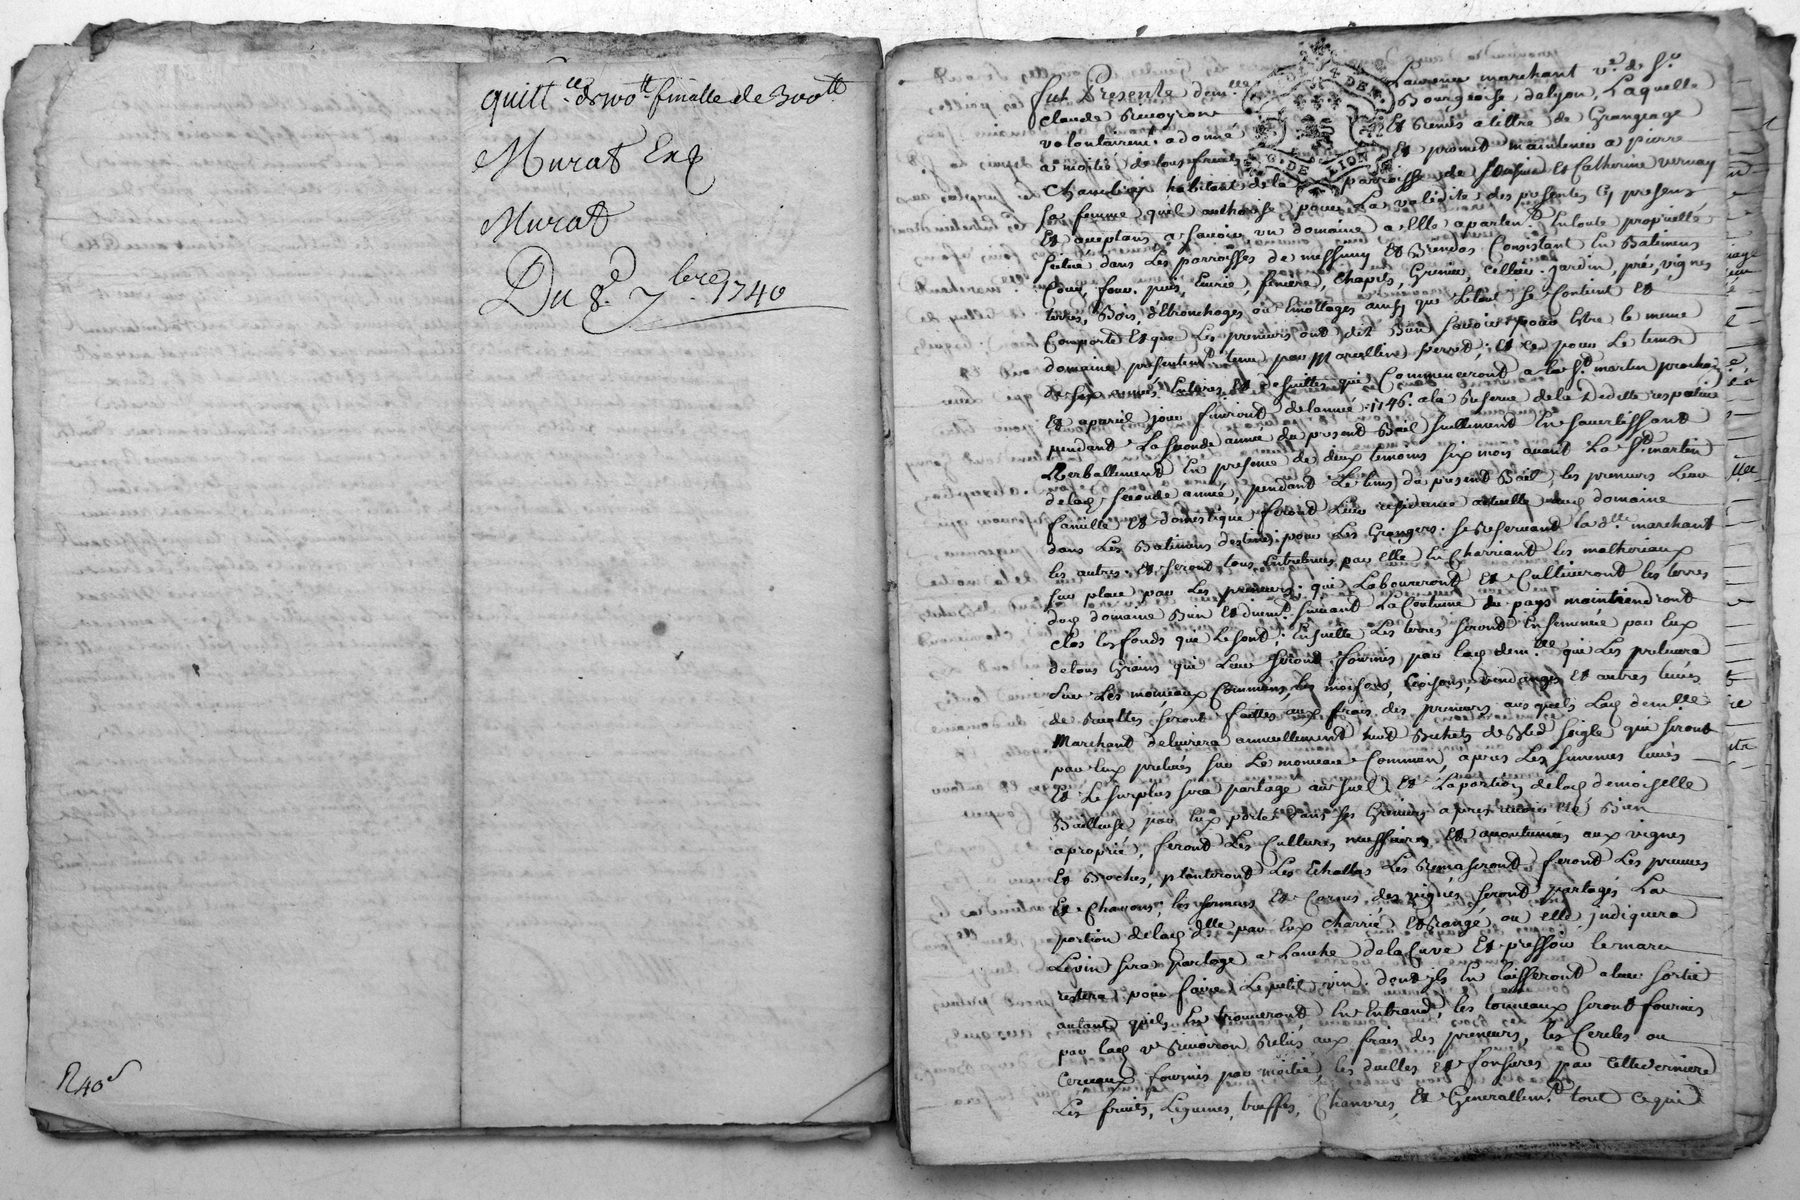 quitt.ce finalle de 300.tt
Murat
Murat
Du 8.e 7.bre 1740
R 40 s
G. DE LION
fut Presente dem.lle Laurence marchant v.e de S.r
Claude Bourgeoise de Lyon, Laquelle
volontairem.t a donné Et Remis a tittre de Grangeage
a moitié de tous fruits Et promet maintenir a pierre
habitant de la parroisse de Et Catherine Vernay
sa femme quil authorise pour La validité des presentes Cy presens
Et aceptans a scavoir un domaine a Elle aparten.t En toute proprieté
scitué dans Les parroisses de messimy Et Brindas Consistant En Batimens
Cour, four, puis, Ecurie, feniere, Chapits, Grenier, Cellier, jardin, pré, vignes
terres, Bois, Ebronchages ou Emottages ainsy que Le tout se Contient Et
Comporte Et que Les preneurs ont dit Bien scavoir pour Estre le meme
domaine presentem.t tenu par Marcellin ferret; Et Ce pour Le tems
de six années Entieres Et Consecutives qui Commenceront a la S.t martin prochaine
Et a pareil jour finiront de lannée 1746. a la Reserve de la Deditte respective
pendant La seconde année du present Bail seullement En savertissant
verballement En presence de deux temoins six mois avant La S.t martin
de lad. seconde année, pendant Le tems du present Bail, les preneurs Leur
famille Et domestique feront Leur residance actuelle aud. domaine
dans Les Batimens destinés pour Les Grangers. se Reservant la d.lle marchant
les autres. Et seront tous Entretenus par elle En Charriant les matheriaux
sur place par Les preneurs; qui Laboureront Et Cultiveront les terres
dud. domaine Bien Et duem.t suivant La Coutume du pays maintiendront
Clos les fonds qui Le sont; Ensuitte Les terres seront Ensemencé par Eux
de tous Grains qui Leur seront fournis par lad. dem.lle qui Les prelevera
sur Les monceaux Communs, Les moissons, vendanges Et autres levées
de Recoltes seront faittes aux frais des preneurs auxquels Lad. dem.lle
Marchant delivrera annuellement huit Bichets de Bled seigle qui seront
par Eux prelevés sur Le monceau Commun, apres Les semences levées
Et Le surplus sera partagé au suel, Et La portion de lad. demoiselle
Bailleuse par Eux porté dans ses Greniers apres avoir eté Bien
aproprié, feront Les Cultures necessaires Et acoutumées aux vignes
Et Broches, planteront Les Echallas Les Remasseront feront Les preuves
Et Chapons, les sarmens Et des vignes seront partagés La
portion de lad. d.lle par Eux Charrié Et Rangé ou elle indiquera
Le vin sera partagé a Lanche de la Cuve Et pressoir le marc
restera pour faire Le petit vin dont ils En laisseront a leur sortie
autant quils En trouveront En Entrant, les tonneaux seront fournis
par lad. v.e Reliés aux frais des preneurs, les Cercles ou
Cerceaux fournis par moitié, les duelles Et fonsures par Cette derniere
Les fruits, Legumes, truffes, Chanvres, Et Generallem.t tout Ce qui